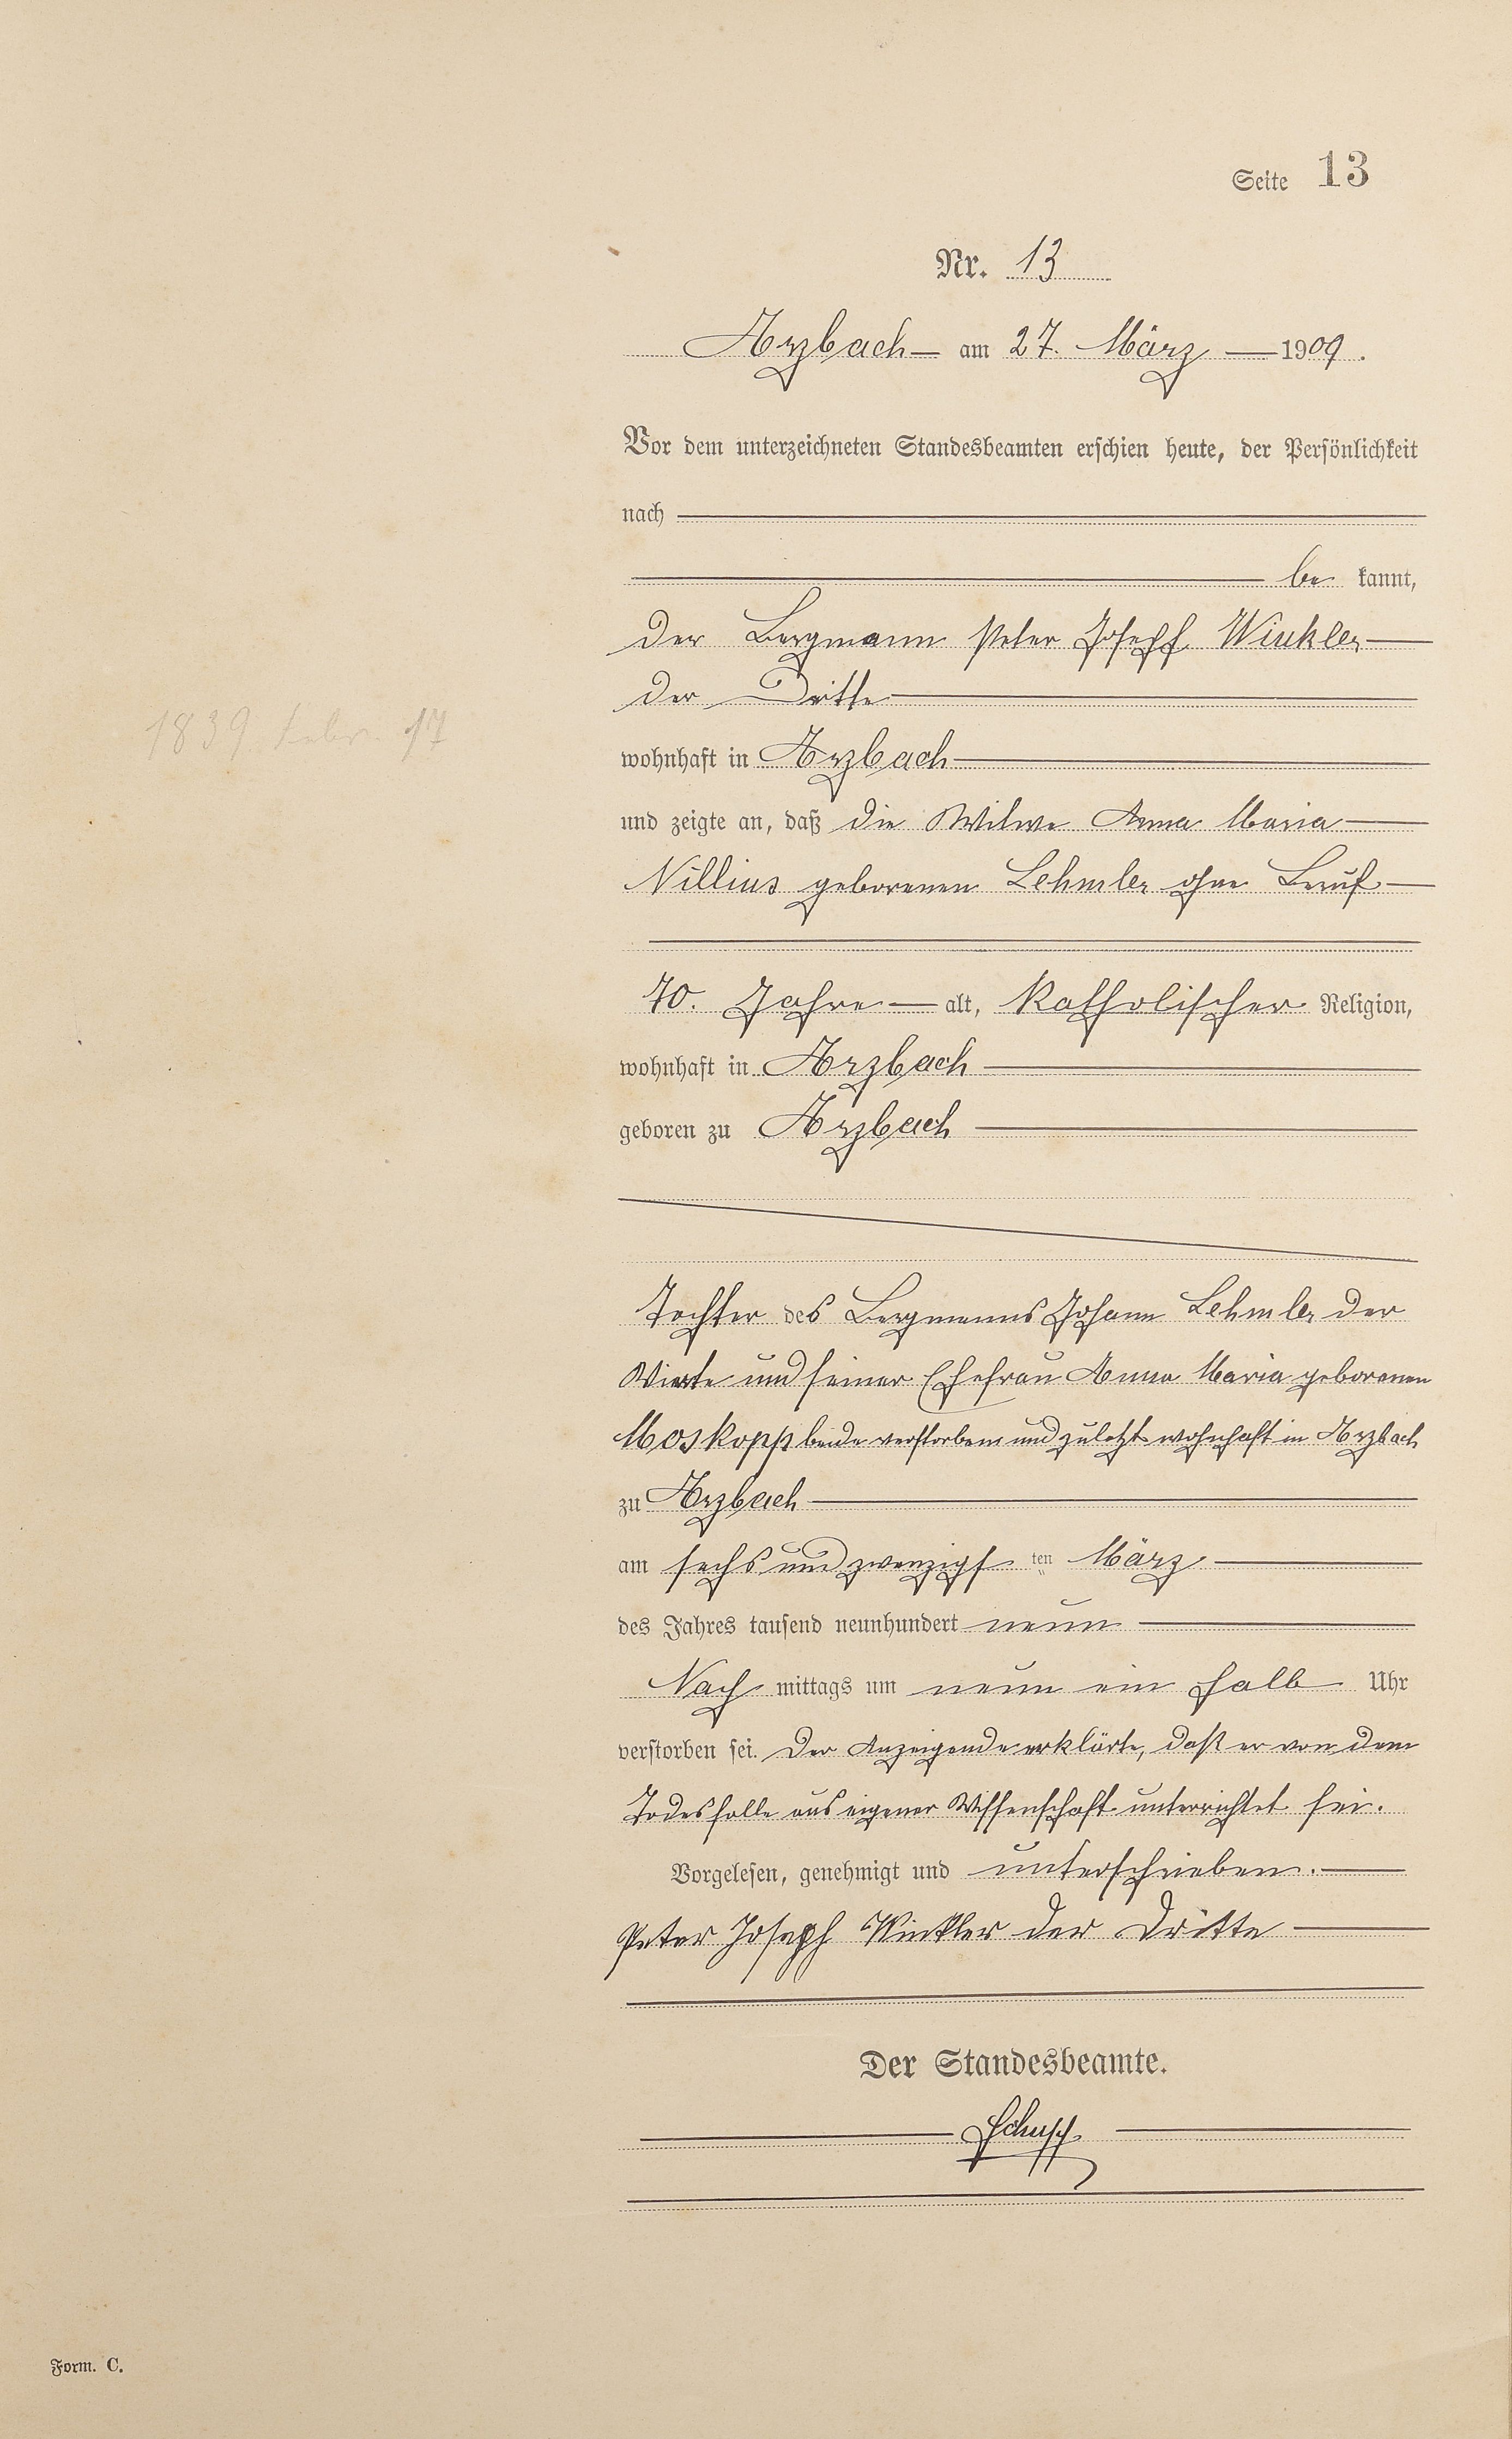 Seite 13
Nr. 13
Arzbach am 27. März 1909.
Vor dem unterzeichneten Standesbeamten erschien heute, der Persönlichkeit
nach
be kannt,
der Bergmann Peter Joseph Winkler
der Dritte
1839 Febr. 17
wohnhaft in Arzbach
und zeigte an, daß die Witwe Anna Maria
Nillius geborenen Lehmler ohne Beruf
70. Jahre alt, Katholischer Religion,
wohnhaft in Arzbach
geboren zu Arzbach
Tochter des Bergmanns Johann Lehmler der
Vierte und seiner Ehefrau Anna Maria geborenen
Moskopp beide verstorben und zuletzt wohnhaft in Arzbach
zu Arzbach
am sechs und zwanzigs ten März
des Jahres tausend neunhundert neun
Nach mittags um neun ein halb Uhr
verstorben sei. Der Anzeigende erklärte, daß er von dem
Todesfalle aus eigener Wissenschaft unterrichtet sei.
Vorgelesen, genehmigt und unterschrieben.
Peter Joseph Winkler der Dritte
Der Standesbeamte.
Schupp
Form. C.